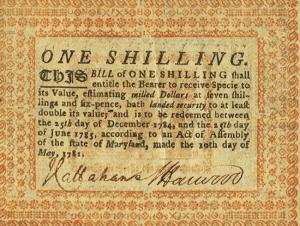 ONE SHILLING.
THIS BILL of ONE SHILLING shall
entitle the Bearer to receive Specie to
its Value, estimating milled Dollars at seven shil-
lings and six-pence, hath landed security to at least
double its value; and is to be redeemed between
the 25th day of December 1784, and the 25th day
of June 1785, according to an Act of Assembly
of the state of Maryland, made the 10th day of
May, 1781.
Callahan Harwood